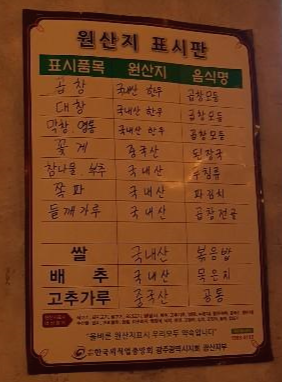 원산지 표시판
표시품목 원산지 음식명
곱창 국내산 한우 곱창모듬
대창 국내산 한우 곱창모듬
막창. 염통 국내산 한우 곱창모듬
꽃게 중국산 된장국
참나물. 부추 국내산 무침류
쪽파 국내산 파김치
들깨가루 국내산 곱창전골
쌀 국내산 볶음밥
배추 국내산 묵은지
고추가루 중국산 공통
"올바른 원산지표시 우리모두 약속입니다"
한국외식업중앙회 광주광역시지회